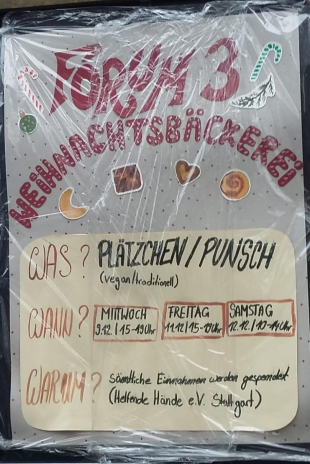 FORUM 3
WEIHNACHTSBÄCKEREI
WAS? PLÄTZCHEN/PUNSCH
(vegan/traditionell)
WANN? MITTWOCH FREITAG SAMSTAG
9.12. | 15-19 Uhr 11.12. | 15-19 Uhr 12.12. | 10-14 Uhr
WARUM? Sämtliche Einnahmen werden gespendet
(Helfende Hände e.V. Stuttgart)